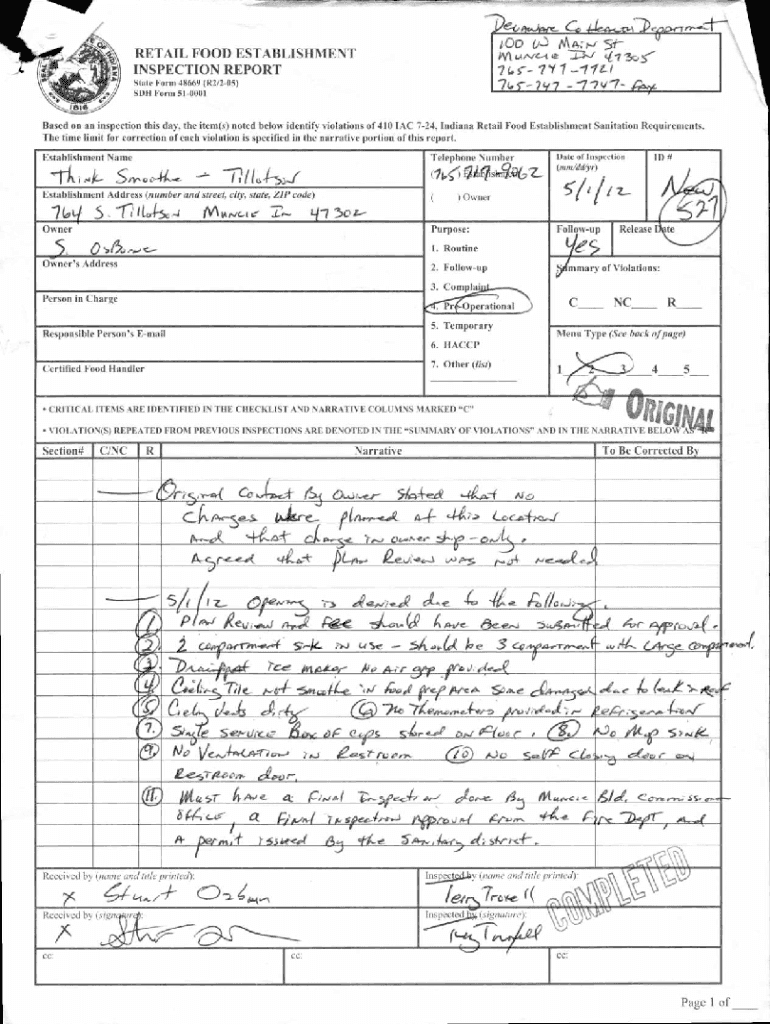 Delaware Co Health Department
100 W Main St
Muncie IN 47305
765-747-7721
765-747-7747- Fax
RETAIL FOOD ESTABLISHMENT
INSPECTION REPORT
State Form 48669 (R2/2-05)
SDH Form 51-0001
1816
Based on an inspection this day, the item(s) noted below identify violations of 410 IAC 7-24, Indiana Retail Food Establishment Sanitation Requirements.
The time limit for correction of each violation is specified in the narrative portion of this report.
Establishment Name
Think Smoothe - Tillotson
Telephone Number
(765) Establishment
Date of Inspection
(mm/dd/yr)
5/1/12
ID #
New
527
Establishment Address (number and street, city, state, ZIP code)
764 S. Tillotson Muncie In 47302
( ) Owner
Owner
S. Osborne
Purpose:
1. Routine
2. Follow-up
3. Complaint
4. Pre-Operational
5. Temporary
6. HACCP
7. Other (list)
Follow-up
Yes
Release Date
Owner's Address
Summary of Violations:
C____ NC____ R____
Person in Charge
Responsible Person's E-mail
Menu Type (See back of page)
1__2__3__4__5__
Certified Food Handler
• CRITICAL ITEMS ARE IDENTIFIED IN THE CHECKLIST AND NARRATIVE COLUMNS MARKED "C"
ORIGINAL
• VIOLATION(S) REPEATED FROM PREVIOUS INSPECTIONS ARE DENOTED IN THE "SUMMARY OF VIOLATIONS" AND IN THE NARRATIVE BELOW AS "R"
Section# C/NC R Narrative To Be Corrected By
Original Contact By Owner Stated that No
Changes were planned at this Location
And that change in owner ship-only.
Agreed that plan Review was not needed
5/1/12 Opening is denied due to the following.
1. Plan Review and Fee should have Been submitted for approval.
2. 2 compartment sink in use - should be 3 compartment with Large compartment.
3. Ice maker No Air gap provided
4. Ceiling Tile not smoothe in food prep Area some damaged due to leak in Roof
5. Vents dirty 6. No Themometers provided in Refrigeration
7. Single service Box of cups stored on Floor. 8. No Mop sink
9. No Ventalation in Restroom 10 No self closing door on
Restroom door.
11. Must have a Final Inspection done By Muncie Bld. Commission
office, a Final inspection Approval from the Fire Dept, and
A permit issued By the Sanitary district.
Received by (name and title printed):
x Stuart Ozbun
Inspected by (name and title printed):
Terry Troxell
COMPLETED
Received by (signature):
x
Inspected by (signature):
cc:
cc:
cc:
Page 1 of ____